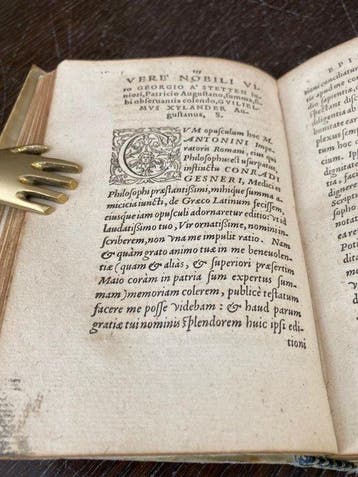 III
VERE' NOBILI VI-
ro GEORGIO A' STETTEN Iu-
niori, Patricio Augustano, summa, si-
bi obseruantia colendo, GVILIEL-
MVS XYLANDER Au-
gustanus, S.
CVM opusculum hoc M.
ANTONINI Impe-
ratoris Romani, eius qui
Philosophus est usurpatus,
instinctu CONRADI
GESNERI, Medici et
Philosophi præstantissimi, mihique summa a-
micicia iuncti, de Græco Latinum fecissem,
eiusque iam opusculi adornaretur editio: ut id
laudatissimo tuo, Vir ornatissime, nomini in-
scriberem, non una me impulit ratio. Nam
& quàm grato animo tuæ in me beneuolen-
tiæ (quam & aliàs, & superiori præsertim
Maio coràm in patria sum expertus sum-
mam) memoriam colerem, publicè testatum
facere me posse videbam: & haud parum
gratiæ tui nominis splendorem huic ipsi edi-
tioni
EPI